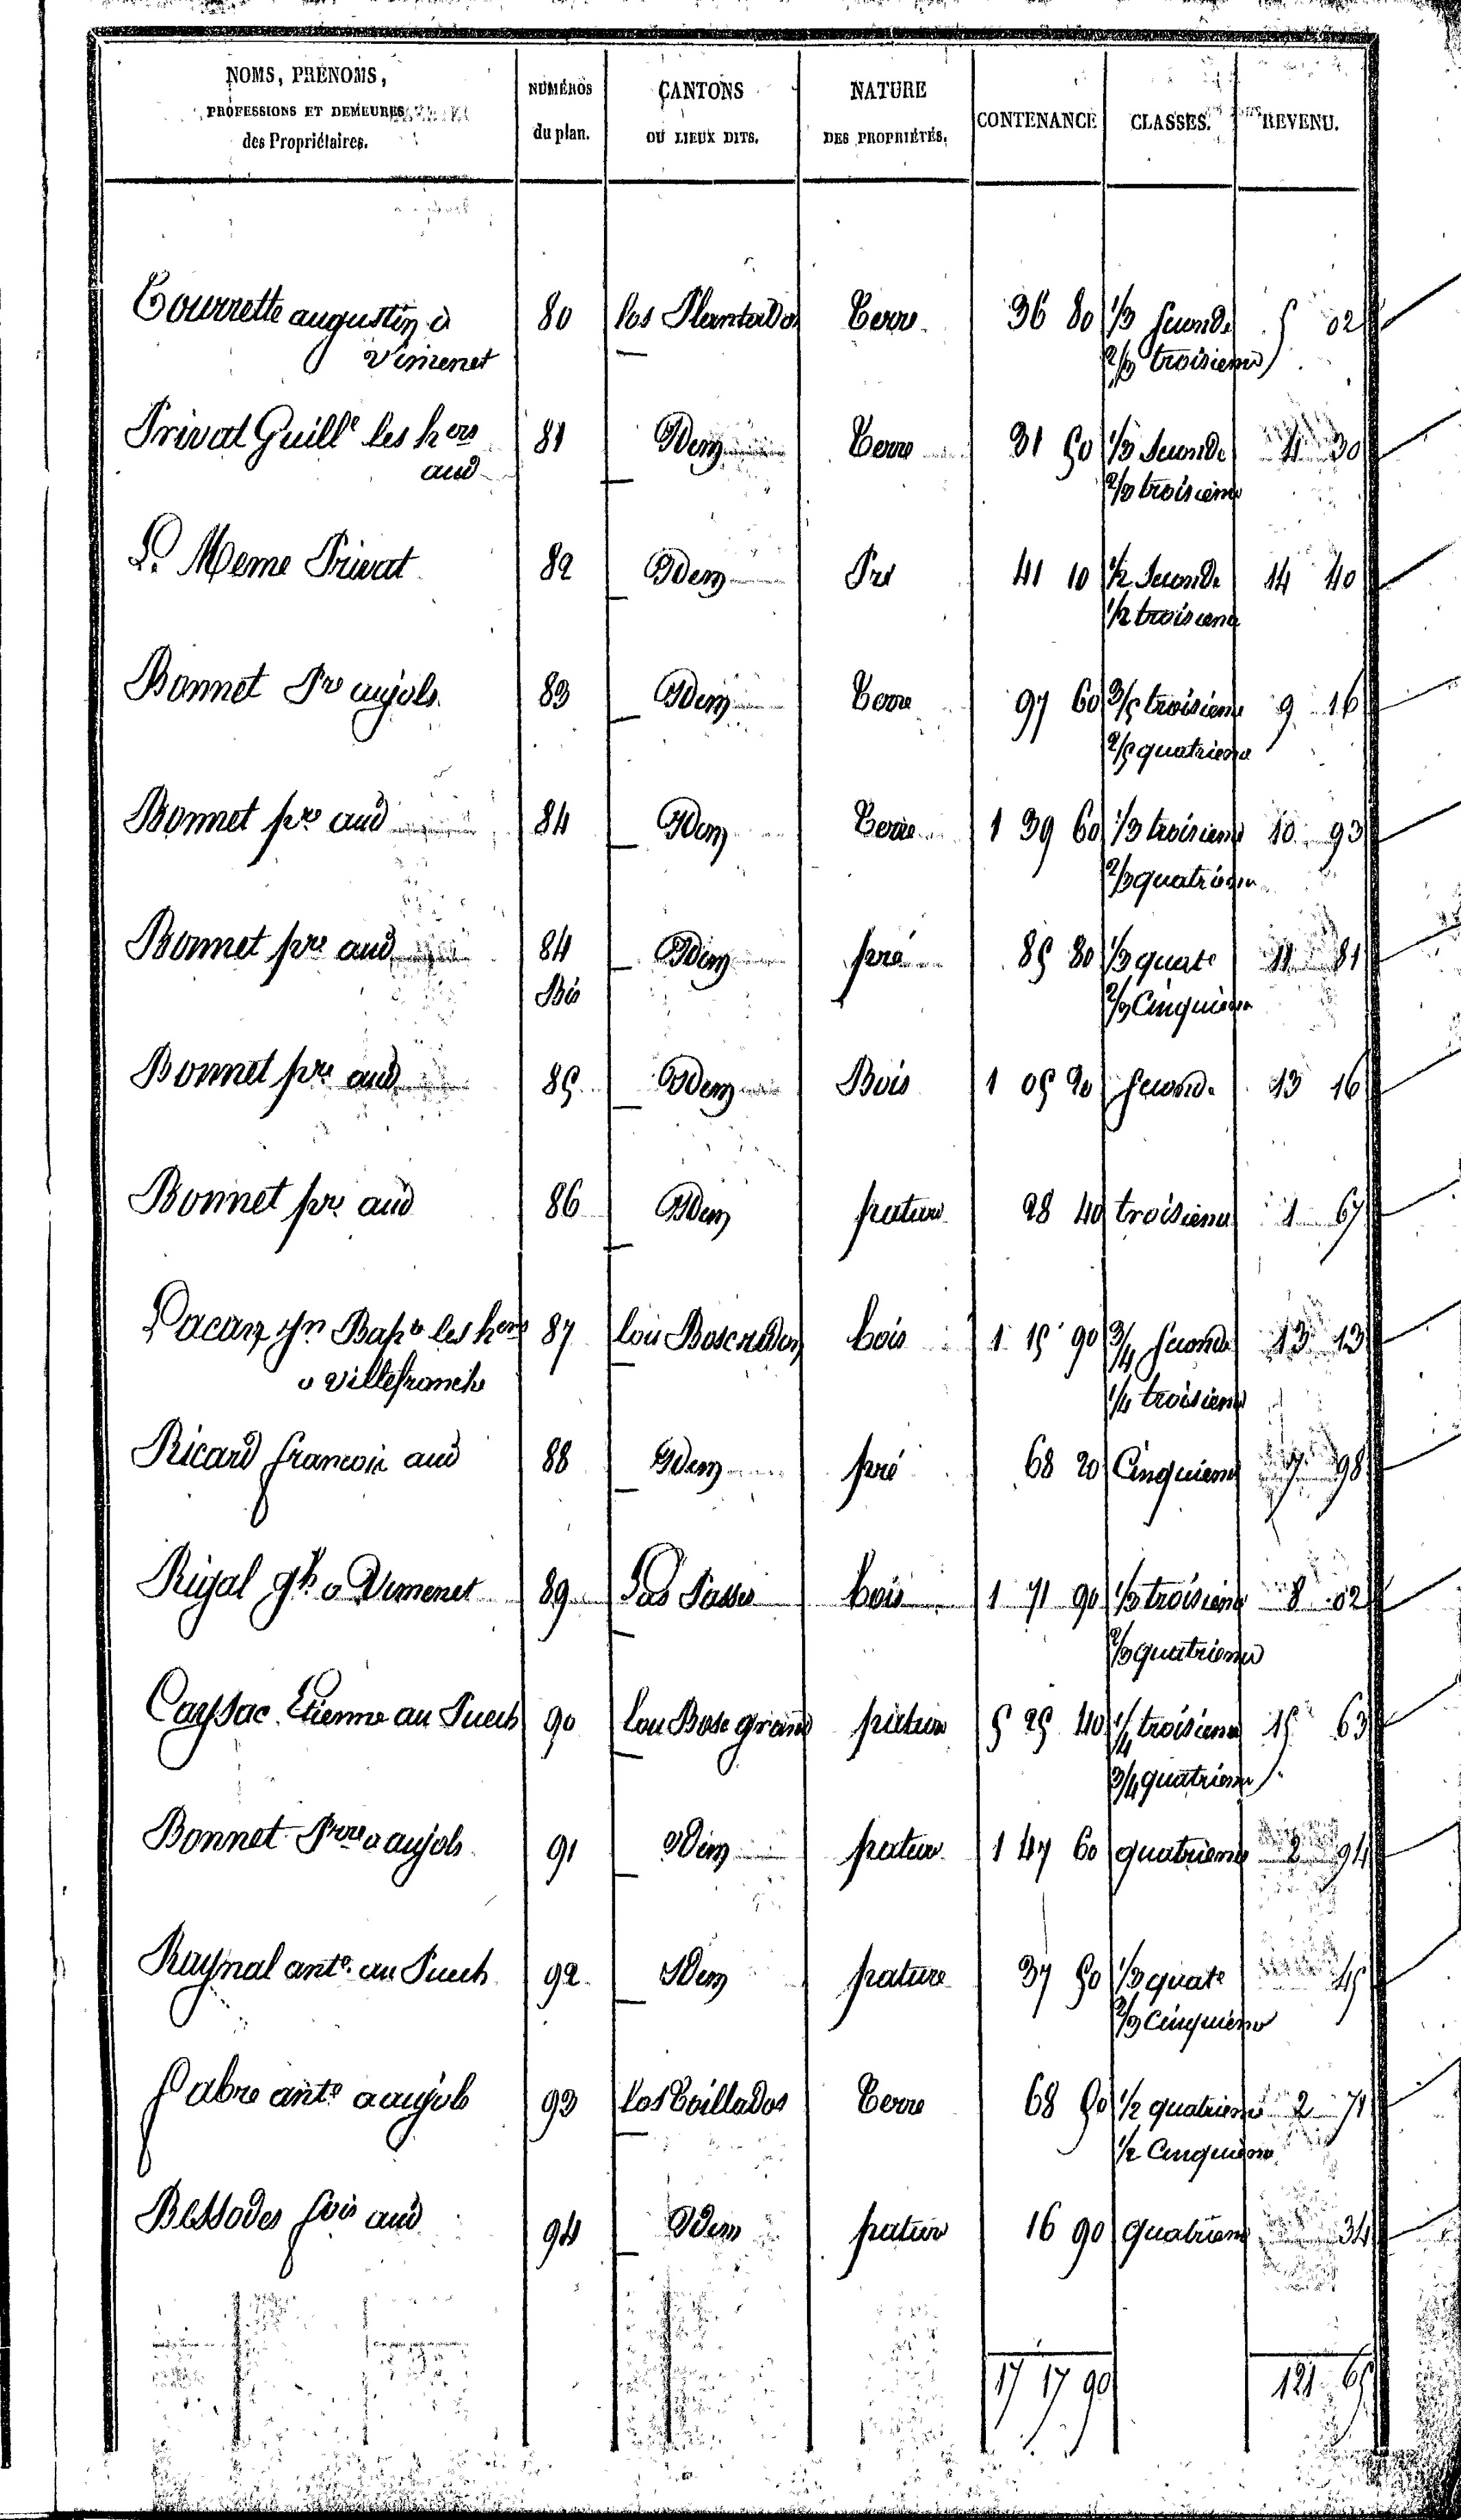 NOMS, PRÉNOMS, PROFESSIONS ET DEMEURES des Propriétaires. NUMÉROS du plan. CANTONS OU LIEUX DITS. NATURE DES PROPRIÉTÉS. CONTENANCE CLASSES. REVENU.
Tourrette augustin à 80 los Plantados Terre 36 80 1/3 seconde 5 02
Vimenet 2/3 troisieme
Privat Guille les hers 81 Idem Terre 31 50 1/3 seconde 4 30
aud 2/3 troisieme
Le Meme Privat 82 Idem Pré 41 10 1/2 seconde 14 40
1/2 troisieme
Bonnet Pre aujols 83 Idem Terre 97 60 3/5 troisieme 9 16
2/5 quatrieme
Bonnet pre aud 84 Idem Terre 1 39 60 1/3 troisieme 10 93
2/3 quatrieme
Bonnet pre aud 84 Idem pré 85 80 1/3 quate 11 81
Bis 2/3 Cinquieme
Bonnet pre aud 85 Idem Bois 1 05 20 seconde 13 16
Bonnet pre aud 86 Idem pature 28 40 troisieme 1 67
Lacan jn Bapte les hers 87 lou Boscredon bois 1 15 90 3/4 seconde 13 13
a villefranche 1/4 troisieme
Ricard francois aud 88 Idem pré 68 20 Cinquieme 7 98
Rigal a Vimenet 89 Las Passes bois 1 71 90 1/3 troisieme 8 02
2/3 quatrieme
Cayssac Etienne au Puech 90 Lou Bosc grand pature 5 25 40 1/4 troisieme 15 63
3/4 quatrieme
Bonnet Prre a aujols 91 Idem pature 1 47 60 quatrieme 2 94
Raynal ante au Puech 92 Idem pature 37 50 1/3 quate 45
2/3 Cinquieme
fabre ante a aujols 93 Los Taillados Terre 68 50 1/2 quatrieme 2 71
1/2 Cinquieme
Bessodes fois aud 94 Idem pature 16 90 quatrieme 34
17 17 90 121 65